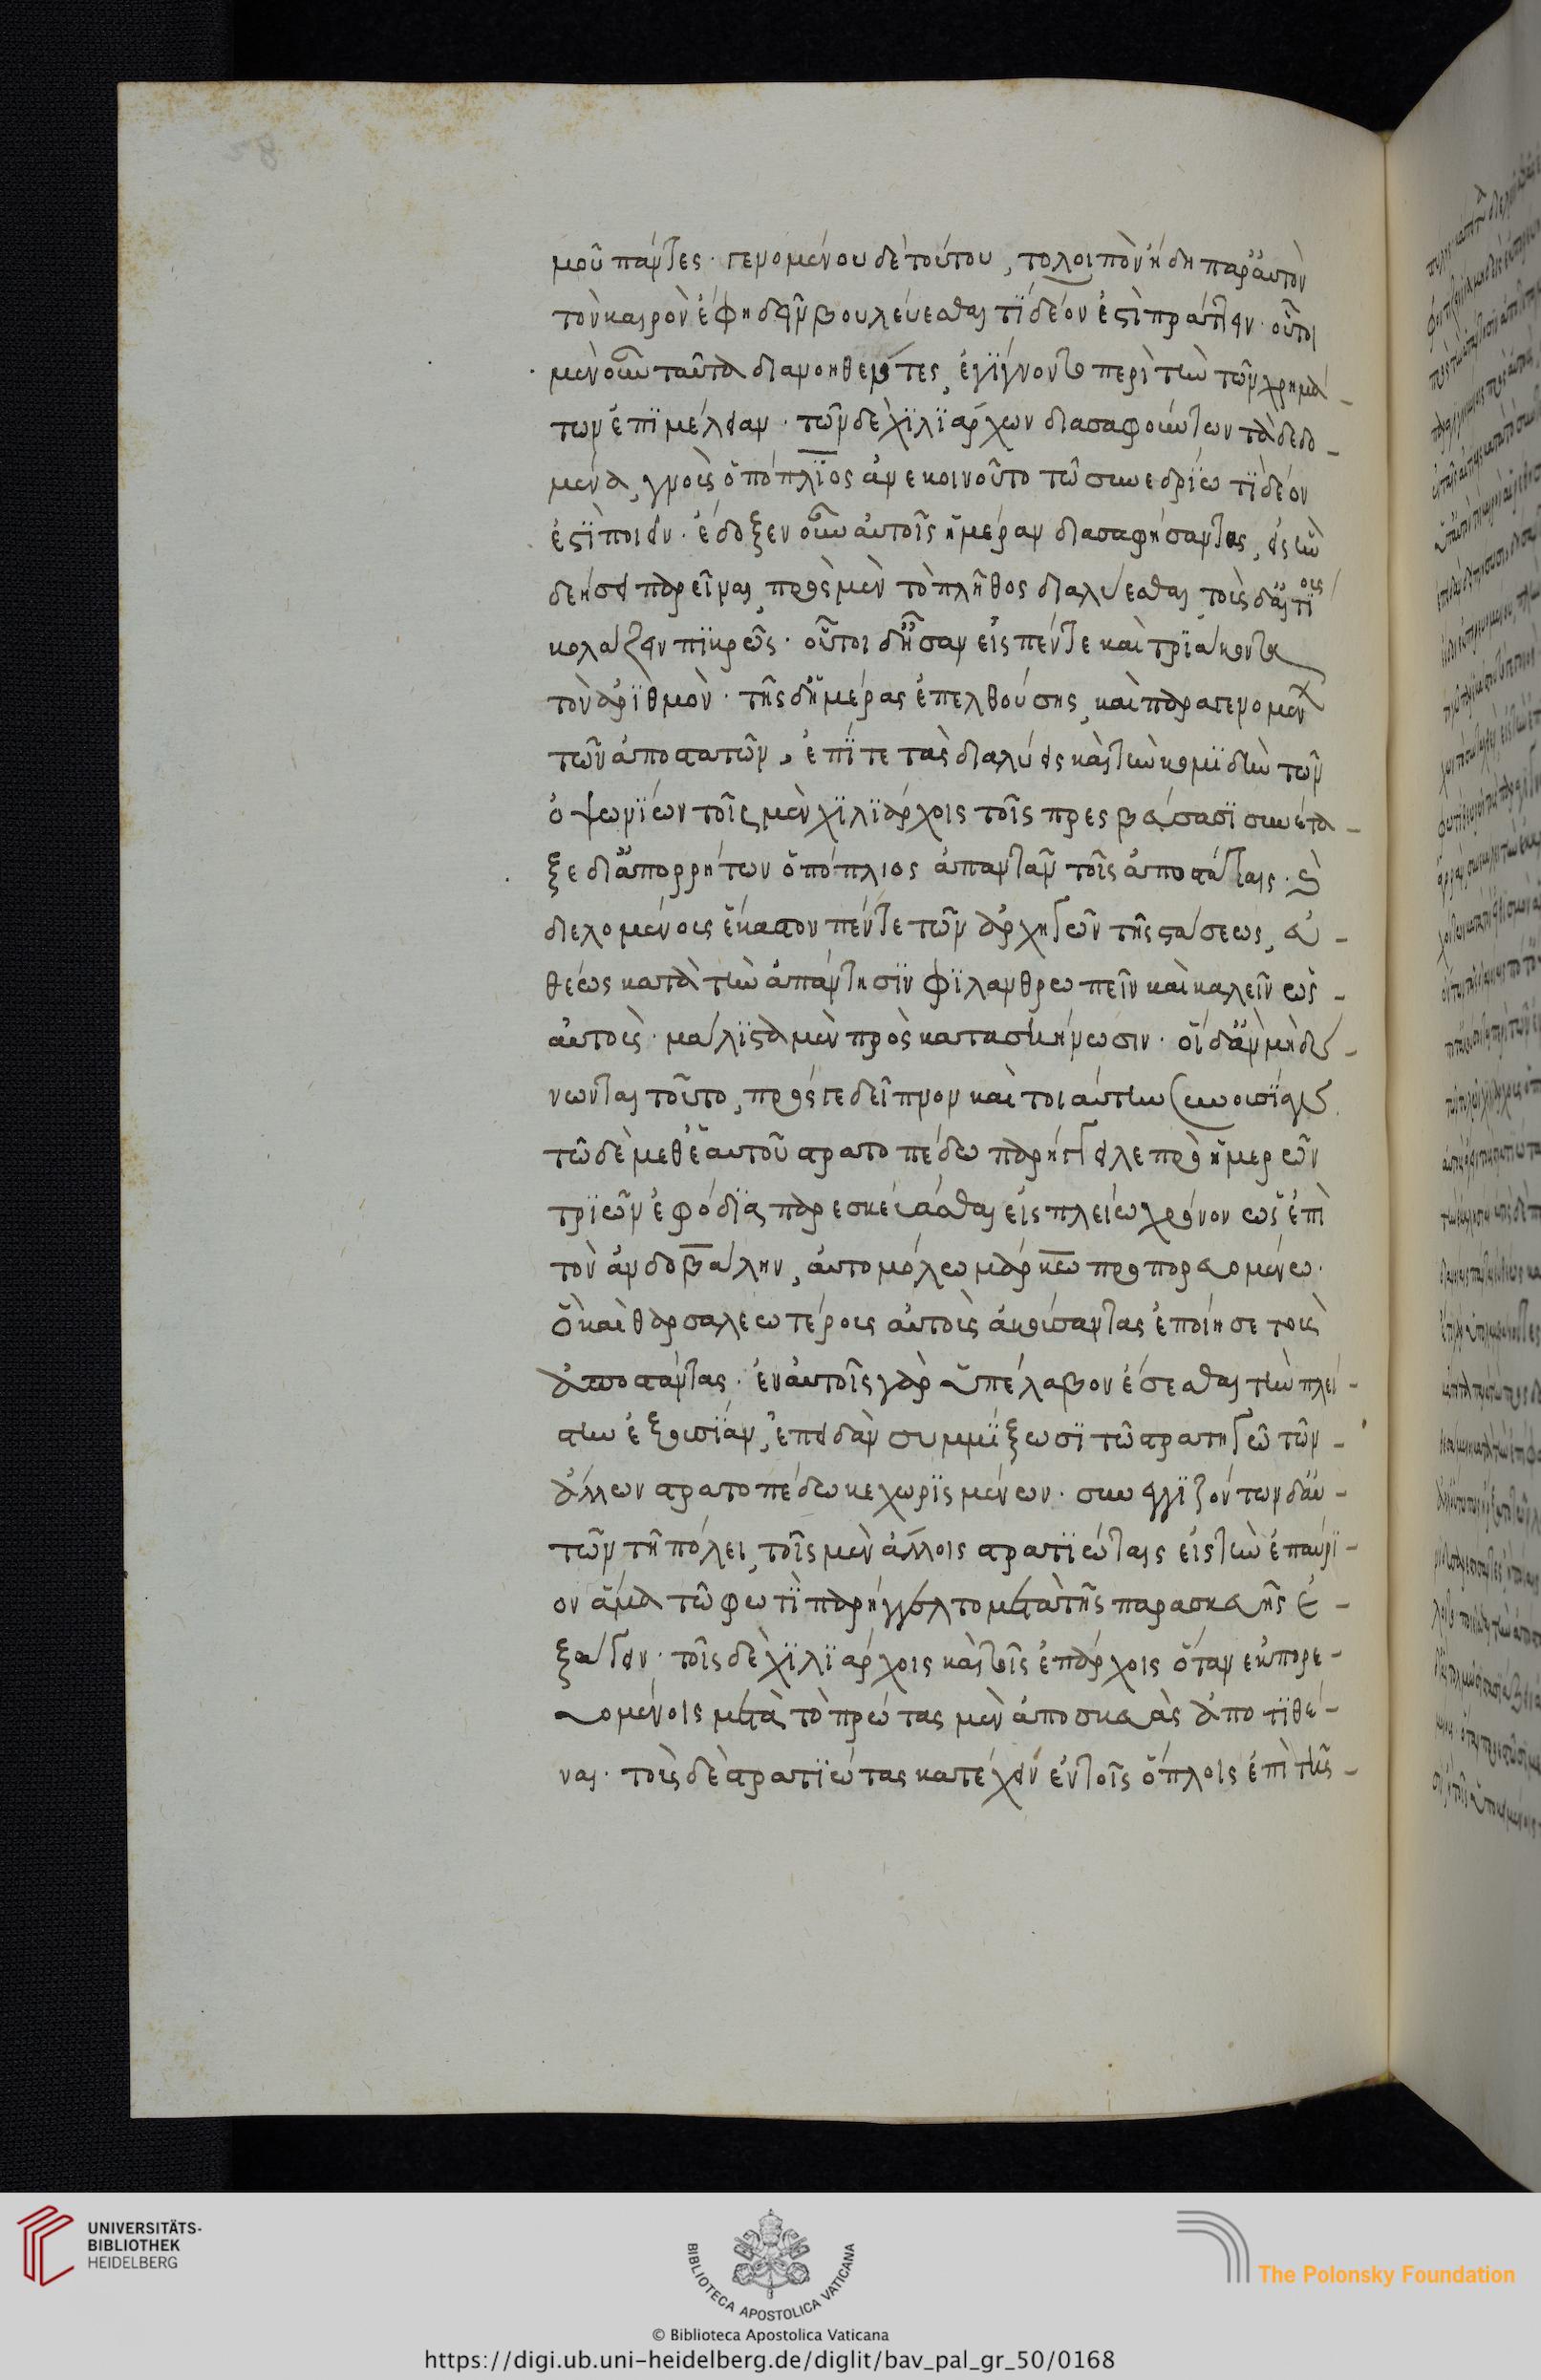 μοῦ πάντες· γενομένου δὲ τούτου, τὸ λοιπὸν ἤδη παρ' αὐτὸν
τὸν καιρὸν ἔφη δεῖν βουλεύεσθαι τί δέον ἐστὶ πράττειν· οὗτοι
μὲν οὖν ταῦτα διανοηθέντες, ἐγίγνοντο περὶ τὴν τῶν χρημά-
των ἐπιμέλειαν· τῶν δὲ χιλιάρχων διασαφούντων τὰ δεδο-
μένα, γνοὺς ὁ Πόπλιος ἀνεκοινοῦτο τῷ συνεδρίῳ τί δέον
ἐστὶ ποιεῖν· ἔδοξεν οὖν αὐτοῖς ἡμέραν διασαφήσαντας, εἰς ἣν
δεήσει παρεῖναι, πρὸς μὲν τὸ πλῆθος διαλύεσθαι, τοὺς δ' αἰτίους
κολάζειν πικρῶς· οὗτοι δ' ἦσαν εἰς πέντε καὶ τριάκοντα
τὸν ἀριθμόν· τῆς δ' ἡμέρας ἐπελθούσης, καὶ παραγενομέν
τῶν ἀποστατῶν, ἐπί τε τὰς διαλύσεις καὶ τὴν κομιδὴν τῶν
ὀψωνίων τοῖς μὲν χιλιάρχοις τοῖς πρεσβεύσασι συνέτα-
ξε δι' ἀπορρήτων ὁ Πόπλιος ἀπαντᾶν τοῖς ἀποστάταις· καὶ
διελομένους ἕκαστον πέντε τῶν ἀρχηγῶν τῆς στάσεως, εὐ-
θέως κατὰ τὴν ἀπάντησιν φιλανθρωπεῖν καὶ καλεῖν ὡς
αὐτούς· μάλιστα μὲν πρὸς κατασκήνωσιν· οἱ δ' ἂν μὴ δύ-
νωνται τοῦτο, πρός γε δεῖπνον καὶ τοιαύτην συνουσίαν
τῷ δὲ μεθ' ἑαυτοῦ στρατοπέδῳ παρήγγειλε πρὸ ἡμερῶν
τριῶν ἐφόδια παρεσκευάσθαι εἰς πλείω χρόνον ὡς ἐπὶ
τὸν Ἀνδοβάλην, αὐτομόλῳ Μάρκῳ προπορευομένῳ·
ὃ καὶ θαρσαλεωτέρους αὐτοὺς ἀκούσαντας ἐποίησε τοὺς
ἀποστάντας· ἐν αὐτοῖς γὰρ ὑπέλαβον ἔσεσθαι τὴν πλεί-
στην ἐξουσίαν, ἐπειδὰν συμμίξωσι τῷ στρατηγῷ τῶν
ἄλλων στρατοπέδω κεχωρισμένων· συνεγγιζόντων δ' αὐ-
τῶν τῇ πόλει, τοῖς μὲν ἄλλοις στρατιώταις εἰς τὴν ἐπαύρι-
ον ἅμα τῷ φωτὶ παρήγγελτο μετὰ τῆς παρασκευῆς ἐ-
ξάγειν· τοῖς δὲ χιλιάρχοις καὶ τοῖς ἐπάρχοις ὅταν ἐκπορε-
υομένοις μετὰ τὸ πρώτας μὲν ἀποσκευὰς ἀποτιθέ-
ναι· τοὺς δὲ στρατιώτας κατέχειν ἐν τοῖς ὅπλοις ἐπὶ τῆς
UNIVERSITÄTS-
BIBLIOTHEK
HEIDELBERG
BIBLIOTECA APOSTOLICA VATICANA
The Polonsky Foundation
© Biblioteca Apostolica Vaticana
https://digi.ub.uni-heidelberg.de/diglit/bav_pal_gr_50/0168